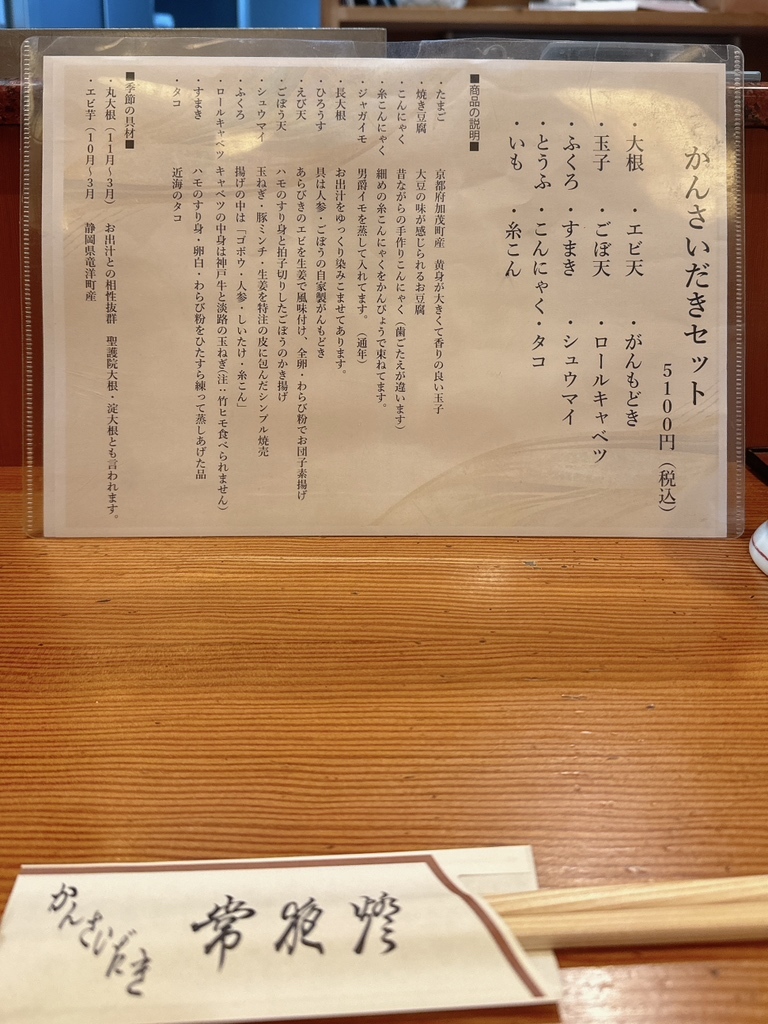 かんさいだきセット
5100円（税込）
・大根　・エビ天　・がんもどき
・玉子　・ごぼ天　・ロールキャベツ
・ふくろ　・すまき　・シュウマイ
・とうふ　・こんにゃく・タコ
・いも　・糸こん
■商品の説明■
・たまご　京都府加茂町産　黄身が大きくて香りの良い玉子
・焼き豆腐　大豆の味が感じられるお豆腐
・こんにゃく　昔ながらの手作りこんにゃく（歯ごたえが違います）
・糸こんにゃく　細めの糸こんにゃくをかんぴょうで束ねてます。
・ジャガイモ　男爵イモを蒸して入れてます。（通年）
・長大根　お出汁をゆっくり染みこませてあります。
・ひろうす　具は人参・ごぼうの自家製がんもどき
・えび天　あらびきのエビを生姜で風味付け、全卵・わらび粉でお団子素揚げ
・ごぼう天　ハモのすり身と拍子切りしたごぼうのかき揚げ
・シュウマイ　玉ねぎ・豚ミンチ・生姜を特注の皮に包んだシンプル焼売
・ふくろ　揚げの中は「ゴボウ・人参・しいたけ・糸こん」
・ロールキャベツ　キャベツの中身は神戸牛と淡路の玉ねぎ(注：竹ヒモ食べられません)
・すまき　ハモのすり身・卵白・わらび粉をひたすら練って蒸しあげた品
・タコ　近海のタコ
■季節の具材■
・丸大根（11月〜3月）　お出汁との相性抜群　聖護院大根・淀大根とも言われます。
・エビ芋（10月〜3月　静岡県竜洋町産
かんさいだき
常夜燈